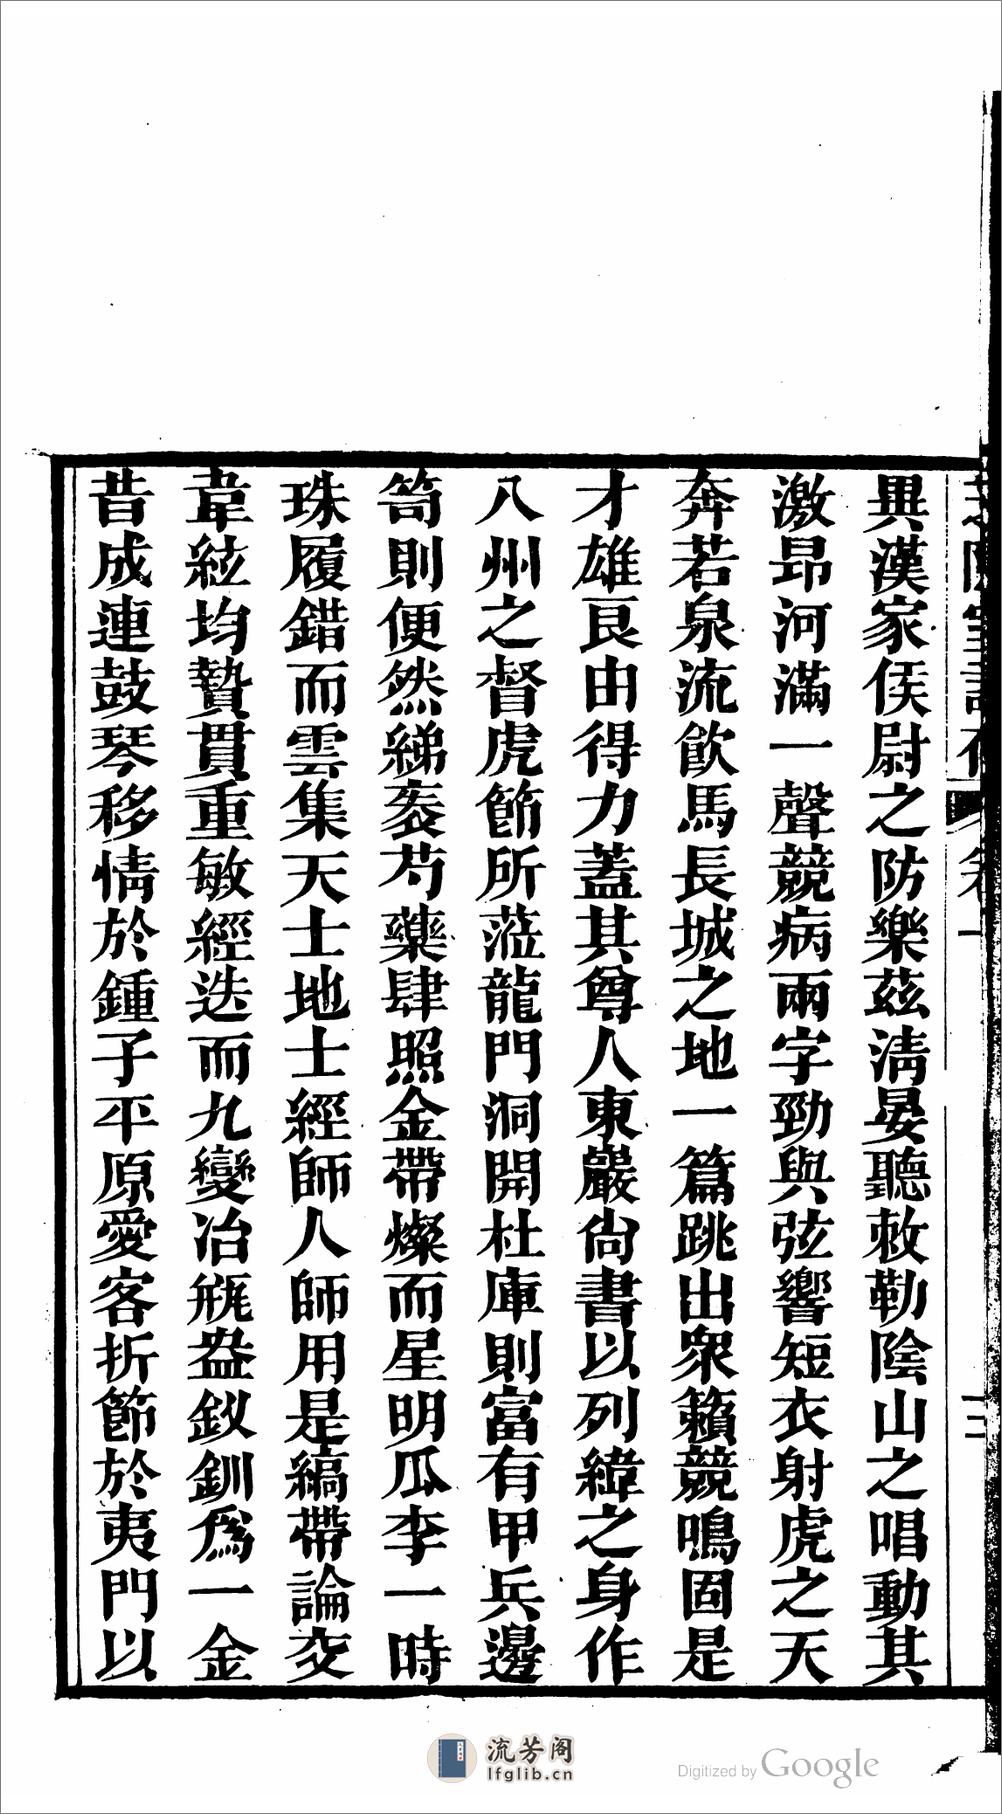 異漢家侯尉之防樂茲清晏聽敕勒陰山之唱動其
激昂河滿一聲競病兩字勁與弦響短衣射虎之天
奔若泉流飮馬長城之地一篇跳出衆籟競鳴固是
才雄良由得力蓋其尊人東巖尙書以列緯之身作
八州之督虎節所蒞龍門洞開杜庫則富有甲兵邊
笥則便然綈袠芍藥肆照金帶燦而星明瓜李一時
珠履錯而雲集天士地士經師人師用是縞帶論交
韋絃均贄貫重敏經迭而九變冶瓶盎釵釧爲一金
昔成連鼓琴移情於鍾子平原愛客折節於夷門以
卷一
十三
流芳阁
lfglib.cn
Digitized by Google